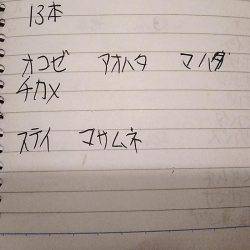 13本
オコゼ アオハタ マハダ
チカメ
ステイ マサムネ